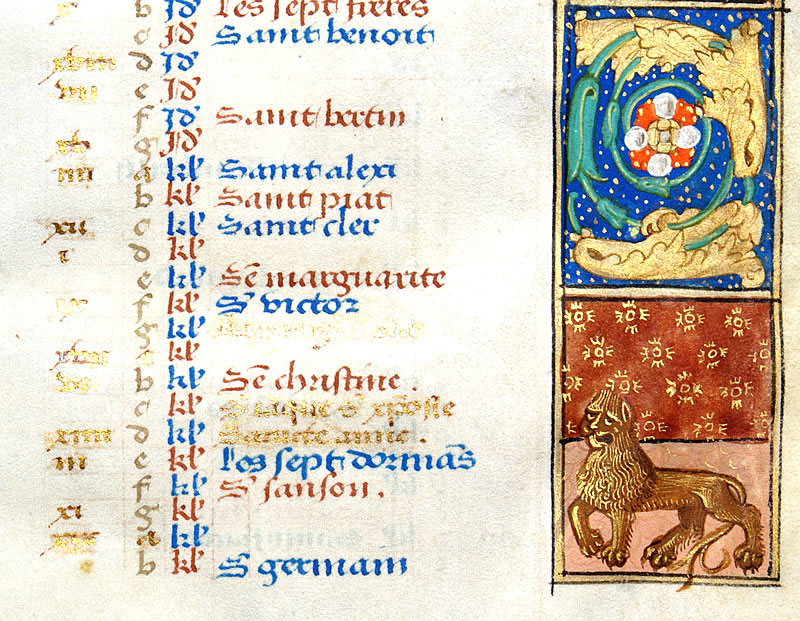 x b Id' Les sept freres
c Id' Saint benoit
xviii d Id'
vii e Id'
f Id' Saint bertin
xv g Id'
iiii a kl' Saint alexi
b kl' Saint priat
xii c kl' Saint cler
i d kl'
e kl' Se marguarite
ix f kl' S victor
g kl'
xvii a kl'
vi b kl' Se christine .
c kl' S iaque S xpofle
xiiii d kl' Saincte anne .
iii e kl' Les sept dormās
f kl' S sanson .
xi g kl'
xix a kl'
b kl' S germain